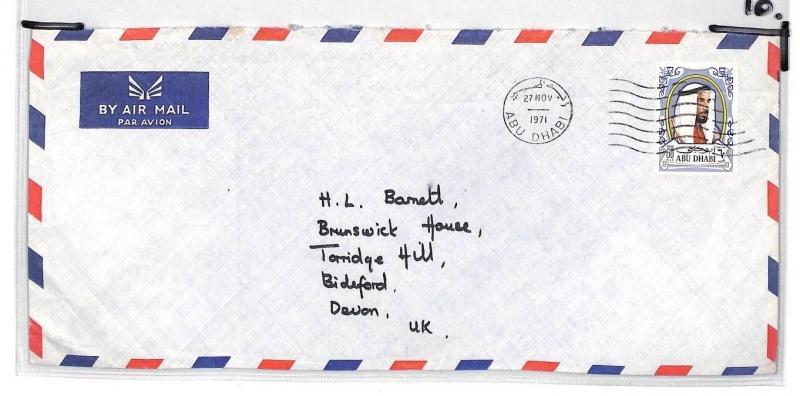 16.
BY AIR MAIL
PAR AVION
27 NOV
1971
ABU DHABI
60
ABU DHABI
H. L. Barnett,
Brunswick House,
Torridge Hill,
Bideford,
Devon,
UK.